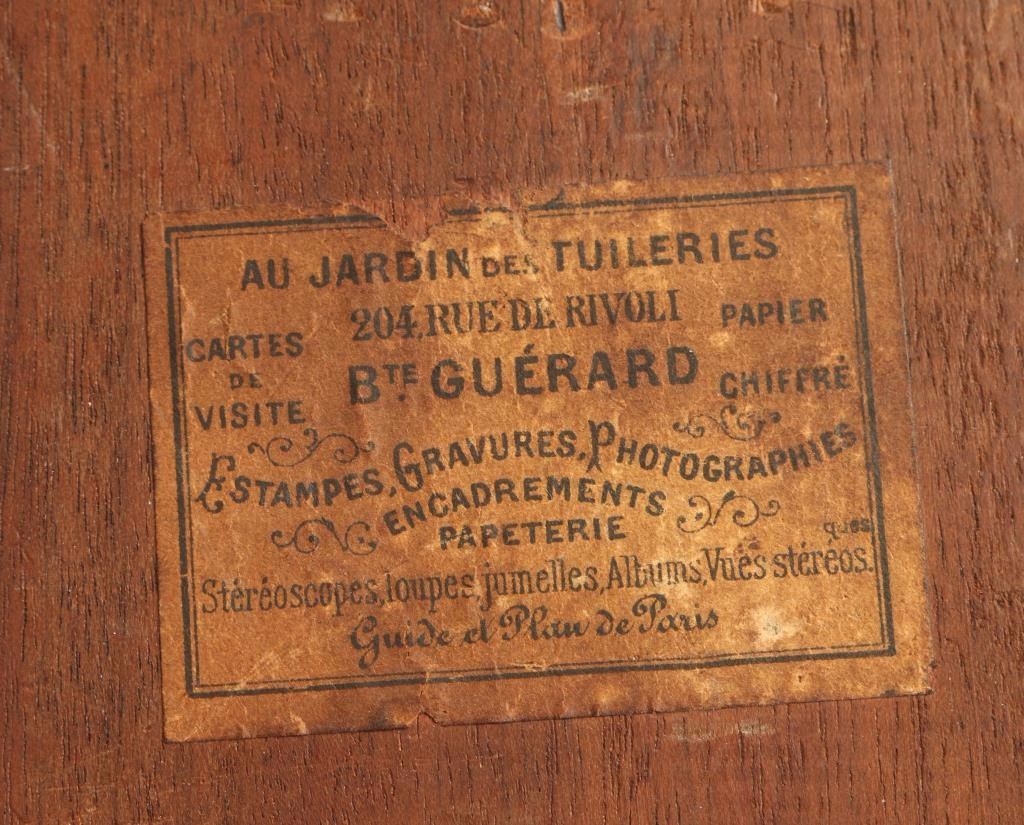 AU JARDIN DES TUILERIES
204, RUE DE RIVOLI
BTE GUÉRARD
CARTES
DE
VISITE
PAPIER
CHIFFRÉ
ESTAMPES, GRAVURES, PHOTOGRAPHIES
ENCADREMENTS
PAPETERIE
Stéréoscopes, loupes, jumelles, Albums, Vues stéréos.ques
Guide et Plan de Paris